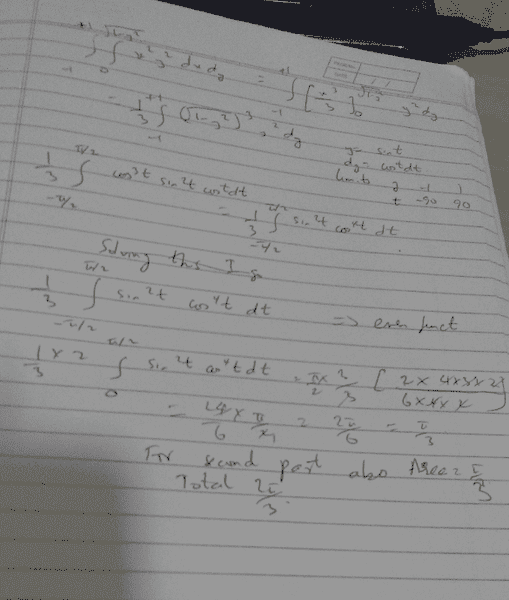 ∫_{-1}^{+1} ∫_0^{√(1-y²)} x² y² dx dy = ∫_{-1}^{+1} [x³/3]_0^{√(1-y²)} y² dy
= 1/3 ∫_{-1}^{+1} (√(1-y²))³ y² dy
y = sin t
dy = cos t dt
limits y -1 1
t -90 90
1/3 ∫_{-π/2}^{π/2} cos³t sin²t cos t dt
= 1/3 ∫_{-π/2}^{π/2} sin²t cos⁴t dt.
Solving this I
1/3 ∫_{-π/2}^{π/2} sin²t cos⁴t dt => even funct
1/3 x 2 ∫_0^{π/2} sin²t cos⁴t dt = π/2 x 2/3 [
= x π = 2π/6 = π/3
For second part also Area = π/3
Total 2π/3.